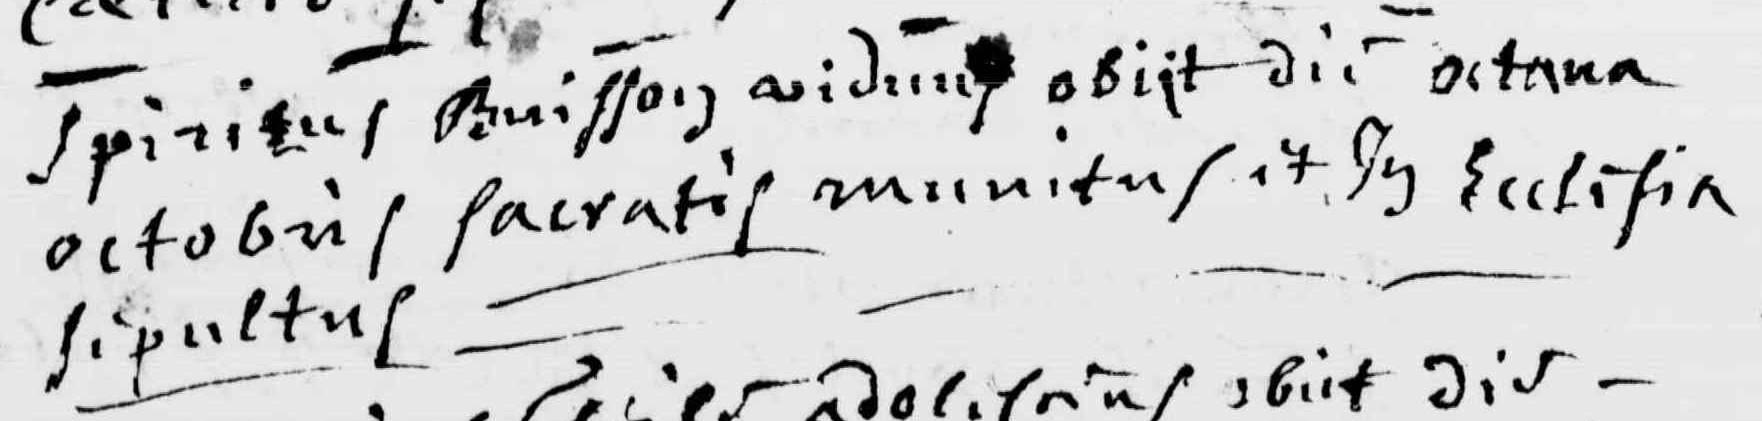 Spiritus Buisson viduus obiit die octava
octobris sacratis munitus et In Ecclesia
sepultus
adolescens obiit die